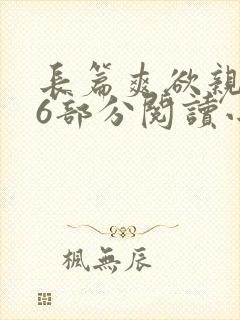 長篇爽欲親
6部分閱讀小
楓無辰